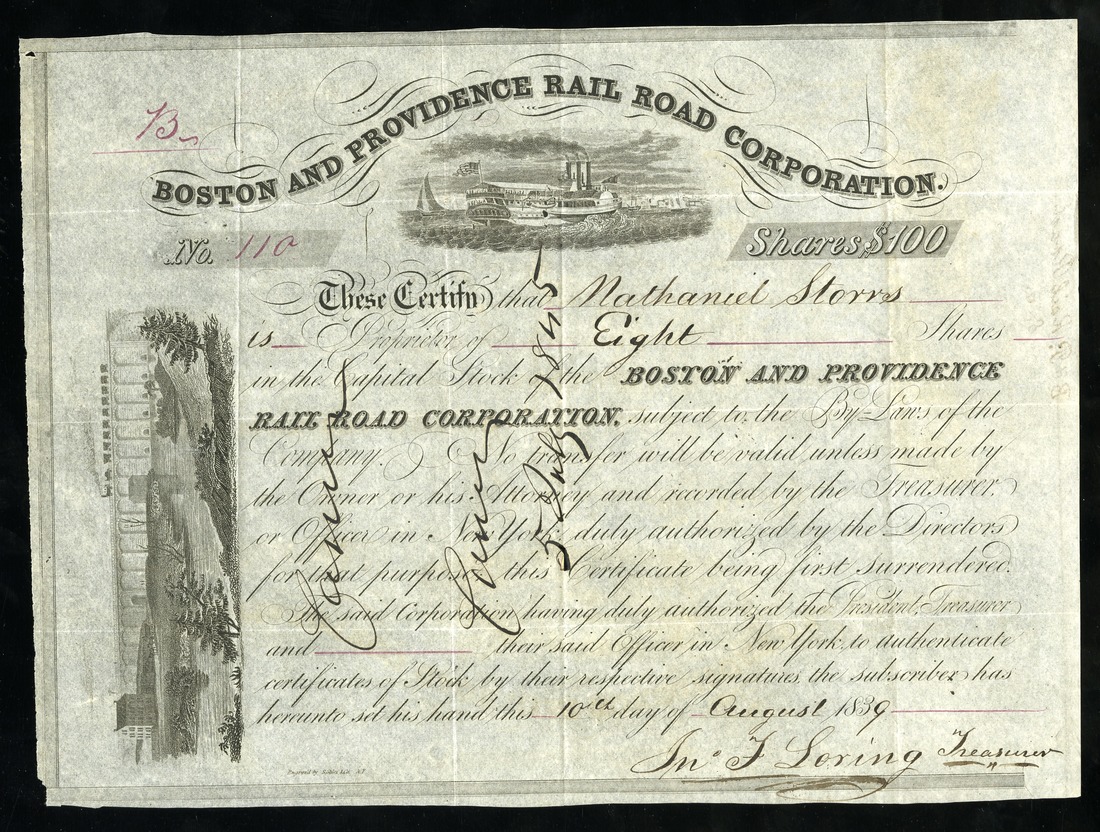 BOSTON AND PROVIDENCE RAIL ROAD CORPORATION.
B
No. 110
Shares $100
These Certify that Nathaniel Storrs
is Proprietor of Eight Shares
in the Capital Stock of the BOSTON AND PROVIDENCE
RAIL ROAD CORPORATION, subject to the By-Laws of the
Company. No transfer will be valid unless made by
the Owner or his Attorney and recorded by the Treasurer,
or Officer in New York, duly authorized by the Directors
for that purpose, this Certificate being first surrendered.
The said Corporation having duly authorized the President, Treasurer
and their said Officer in New York, to authenticate
certificates of Stock by their respective signatures, the subscriber has
hereunto set his hand this 10th day of August 1839
Jno F Loring Treasurer
Engraved by N.Y.
5 July 1845